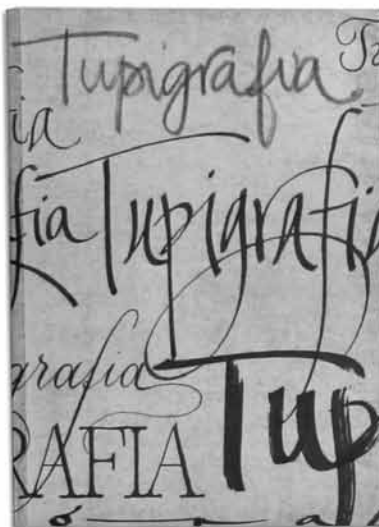 Tupigrafia
ia
fia Tupigrafi
grafia
Tup
RAFIA